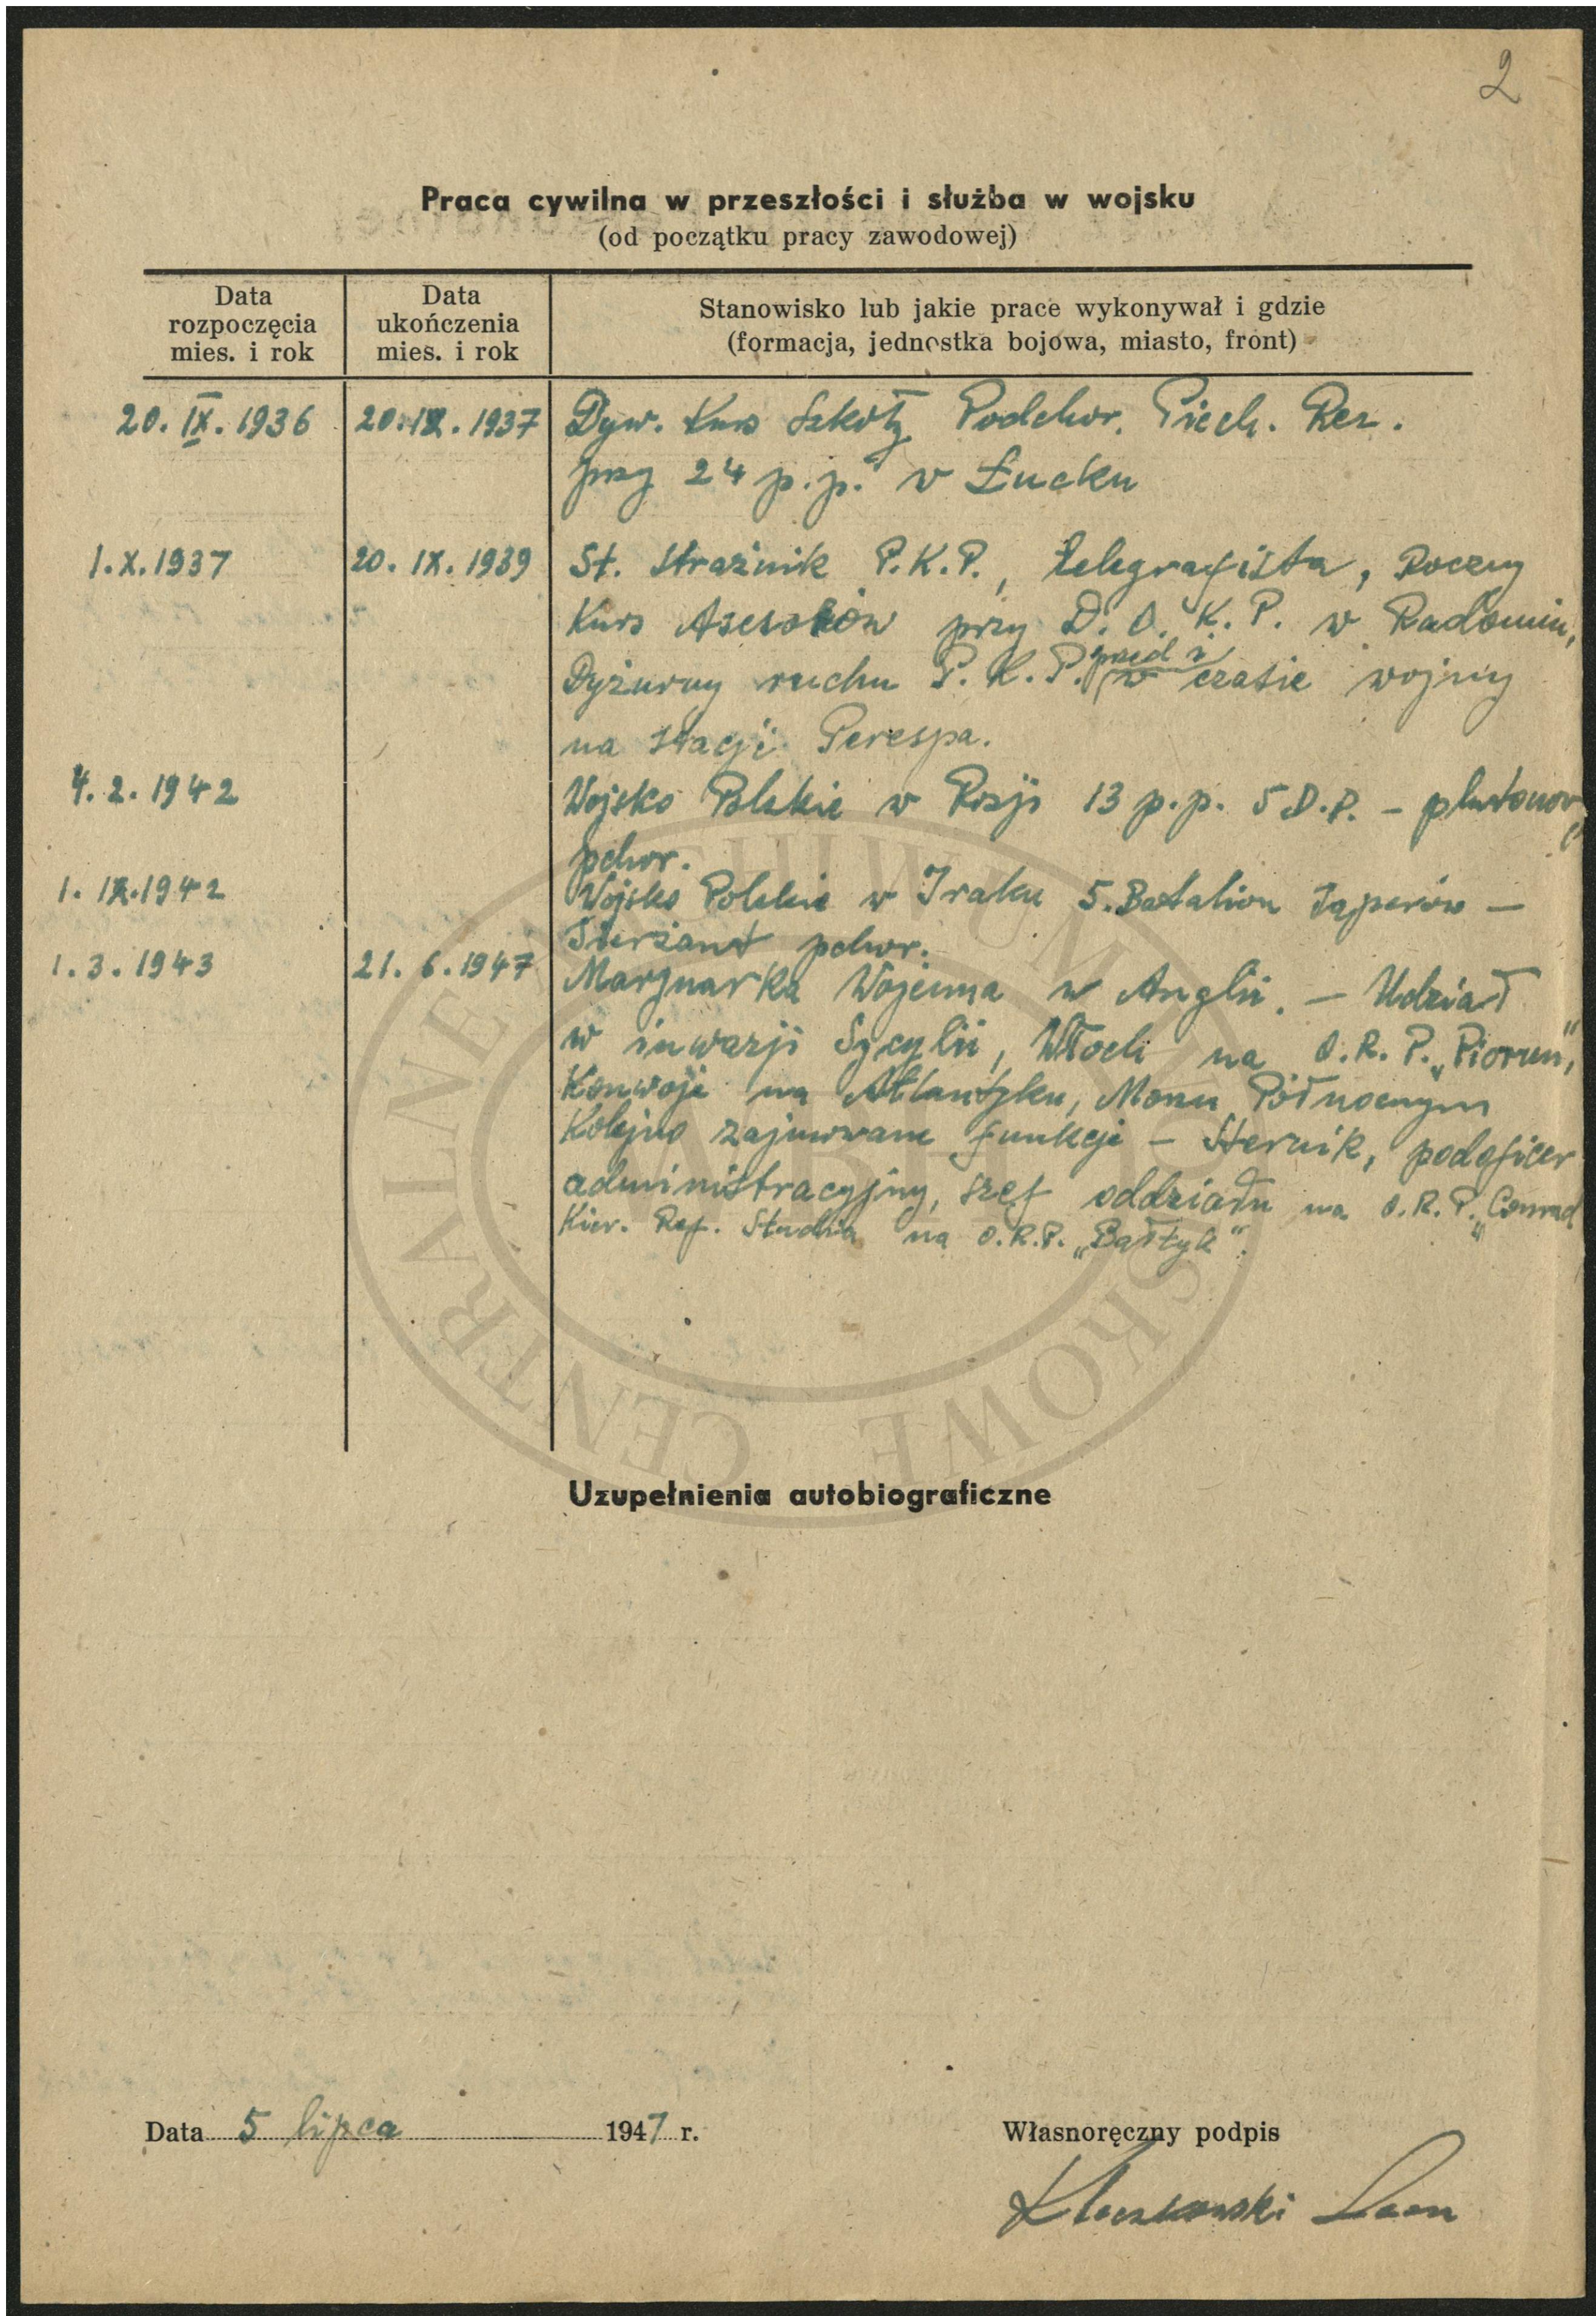 2
Praca cywilna w przeszłości i służba w wojsku
(od początku pracy zawodowej)
Data rozpoczęcia mies. i rok
Data ukończenia mies. i rok
Stanowisko lub jakie prace wykonywał i gdzie
(formacja, jednostka bojowa, miasto, front)
20. IX. 1936 20. IX. 1937 Dyw. Kurs Szkoły Podchor. Piech. Rez.
przy 24 p.p. w Łucku
1.X.1937 20. IX. 1939 St. Strażnik P.K.P., telegrafista, Roczny
Kurs Asesorów przy D.O.K.P. w Radomiu,
przed i
Dyżurny ruchu P.K.P. w czasie wojny
na stacji Perespa.
4.2.1942 Wojsko Polskie w Rosji 13 p.p. 5 D.P. – plutonowy
pchor.
1. IX.1942 Wojsko Polskie w Iraku 5. Batalion Saperów –
Sierżant pchor.
1.3.1943 21.6.1947 Marynarka Wojenna w Anglii. – Udział
w inwazji Sycylii, Włoch na O.R.P. „Piorun",
Konwoje na Atlantyku, Morzu Północnym
Kolejno zajmowane funkcje – Sternik, podoficer
administracyjny, szef oddziału na O.R.P. „Conrad"
Kier. Ref. Studia na O.R.P. „Bałtyk".
Uzupełnienia autobiograficzne
Data 5 lipca 1947 r.
Własnoręczny podpis
Kleczkowski Leon
CENTRALNE ARCHIWUM WOJSKOWE
WBH